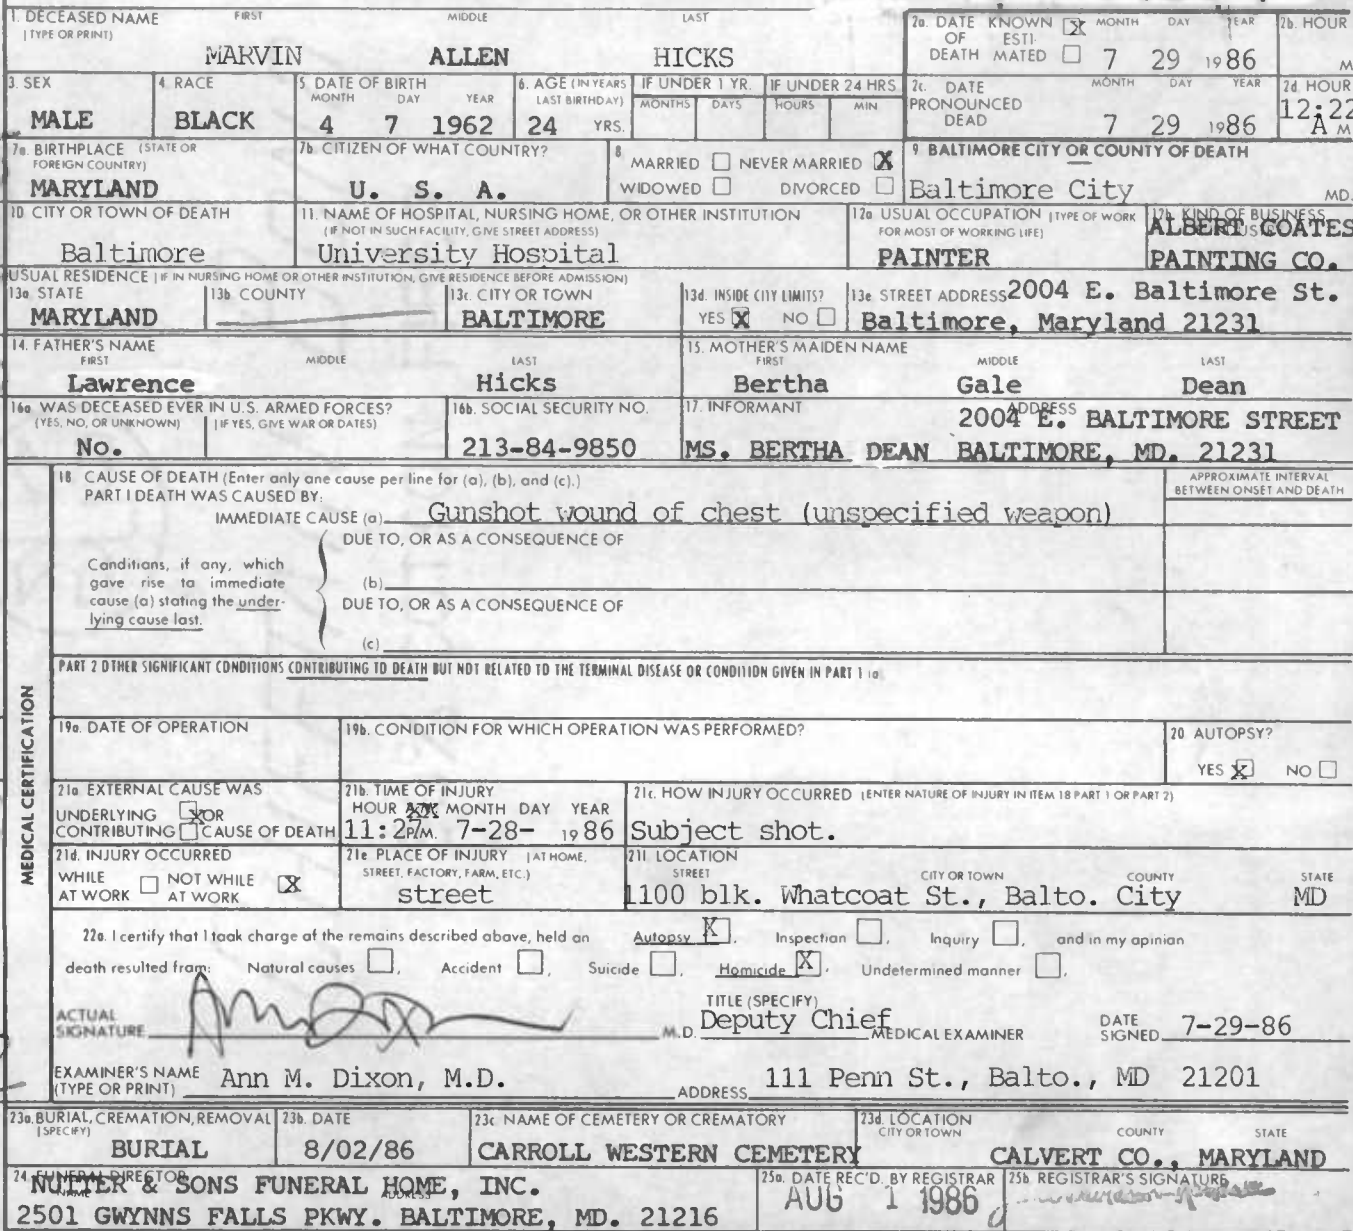 1. DECEASED NAME FIRST MIDDLE LAST
(TYPE OR PRINT)
MARVIN ALLEN HICKS
2a. DATE OF DEATH KNOWN [X] ESTIMATED [ ] MONTH DAY YEAR
7 29 1986
2b. HOUR
M
3. SEX
MALE
4. RACE
BLACK
5. DATE OF BIRTH
MONTH DAY YEAR
4 7 1962
6. AGE (IN YEARS LAST BIRTHDAY)
24 YRS.
IF UNDER 1 YR.
MONTHS DAYS
IF UNDER 24 HRS
HOURS MIN
2c. DATE PRONOUNCED DEAD MONTH DAY YEAR
7 29 1986
2d. HOUR
12:22
A M
7a. BIRTHPLACE (STATE OR FOREIGN COUNTRY)
MARYLAND
7b. CITIZEN OF WHAT COUNTRY?
U. S. A.
8
MARRIED [ ] NEVER MARRIED [X]
WIDOWED [ ] DIVORCED [ ]
9. BALTIMORE CITY OR COUNTY OF DEATH
Baltimore City MD.
10. CITY OR TOWN OF DEATH
Baltimore
11. NAME OF HOSPITAL, NURSING HOME, OR OTHER INSTITUTION
(IF NOT IN SUCH FACILITY, GIVE STREET ADDRESS)
University Hospital
12a. USUAL OCCUPATION (TYPE OF WORK FOR MOST OF WORKING LIFE)
PAINTER
12b. KIND OF BUSINESS
ALBERT COATES
PAINTING CO.
USUAL RESIDENCE (IF IN NURSING HOME OR OTHER INSTITUTION, GIVE RESIDENCE BEFORE ADMISSION)
13a. STATE
MARYLAND
13b. COUNTY
13c. CITY OR TOWN
BALTIMORE
13d. INSIDE CITY LIMITS?
YES [X] NO [ ]
13e. STREET ADDRESS 2004 E. Baltimore St.
Baltimore, Maryland 21231
14. FATHER'S NAME
FIRST MIDDLE LAST
Lawrence Hicks
15. MOTHER'S MAIDEN NAME
FIRST MIDDLE LAST
Bertha Gale Dean
16a. WAS DECEASED EVER IN U.S. ARMED FORCES?
(YES, NO, OR UNKNOWN) (IF YES, GIVE WAR OR DATES)
No.
16b. SOCIAL SECURITY NO.
213-84-9850
17. INFORMANT ADDRESS
2004 E. BALTIMORE STREET
MS. BERTHA DEAN BALTIMORE, MD. 21231
MEDICAL CERTIFICATION
18 CAUSE OF DEATH (Enter only one cause per line for (a), (b), and (c).)
APPROXIMATE INTERVAL BETWEEN ONSET AND DEATH
PART I DEATH WAS CAUSED BY:
IMMEDIATE CAUSE (a) Gunshot wound of chest (unspecified weapon)
DUE TO, OR AS A CONSEQUENCE OF
Conditions, if any, which gave rise to immediate cause (a) stating the underlying cause last.
(b)
DUE TO, OR AS A CONSEQUENCE OF
(c)
PART 2 OTHER SIGNIFICANT CONDITIONS CONTRIBUTING TO DEATH BUT NOT RELATED TO THE TERMINAL DISEASE OR CONDITION GIVEN IN PART 1 (a)
19a. DATE OF OPERATION
19b. CONDITION FOR WHICH OPERATION WAS PERFORMED?
20. AUTOPSY?
YES [X] NO [ ]
21a. EXTERNAL CAUSE WAS
UNDERLYING [X] OR
CONTRIBUTING [ ] CAUSE OF DEATH
21b. TIME OF INJURY
HOUR MONTH DAY YEAR
11:27 P.M. 7-28- 1986
21c. HOW INJURY OCCURRED (ENTER NATURE OF INJURY IN ITEM 18 PART 1 OR PART 2)
Subject shot.
21d. INJURY OCCURRED
WHILE AT WORK [ ] NOT WHILE AT WORK [X]
21e. PLACE OF INJURY (AT HOME, STREET, FACTORY, FARM, ETC.)
street
21f. LOCATION
STREET CITY OR TOWN COUNTY STATE
1100 blk. Whatcoat St., Balto. City MD
22a. I certify that I took charge of the remains described above, held an Autopsy [X], Inspection [ ], Inquiry [ ], and in my opinion
death resulted from: Natural causes [ ], Accident [ ], Suicide [ ], Homicide [X], Undetermined manner [ ],
ACTUAL SIGNATURE M.D.
TITLE (SPECIFY)
Deputy Chief MEDICAL EXAMINER
DATE SIGNED 7-29-86
EXAMINER'S NAME (TYPE OR PRINT) Ann M. Dixon, M.D.
ADDRESS 111 Penn St., Balto., MD 21201
23a. BURIAL, CREMATION, REMOVAL (SPECIFY)
BURIAL
23b. DATE
8/02/86
23c. NAME OF CEMETERY OR CREMATORY
CARROLL WESTERN CEMETERY
23d. LOCATION
CITY OR TOWN COUNTY STATE
CALVERT CO., MARYLAND
24. FUNERAL DIRECTOR
NAME ADDRESS
NUTTER & SONS FUNERAL HOME, INC.
2501 GWYNNS FALLS PKWY. BALTIMORE, MD. 21216
25a. DATE REC'D. BY REGISTRAR
AUG 1 1986
25b. REGISTRAR'S SIGNATURE